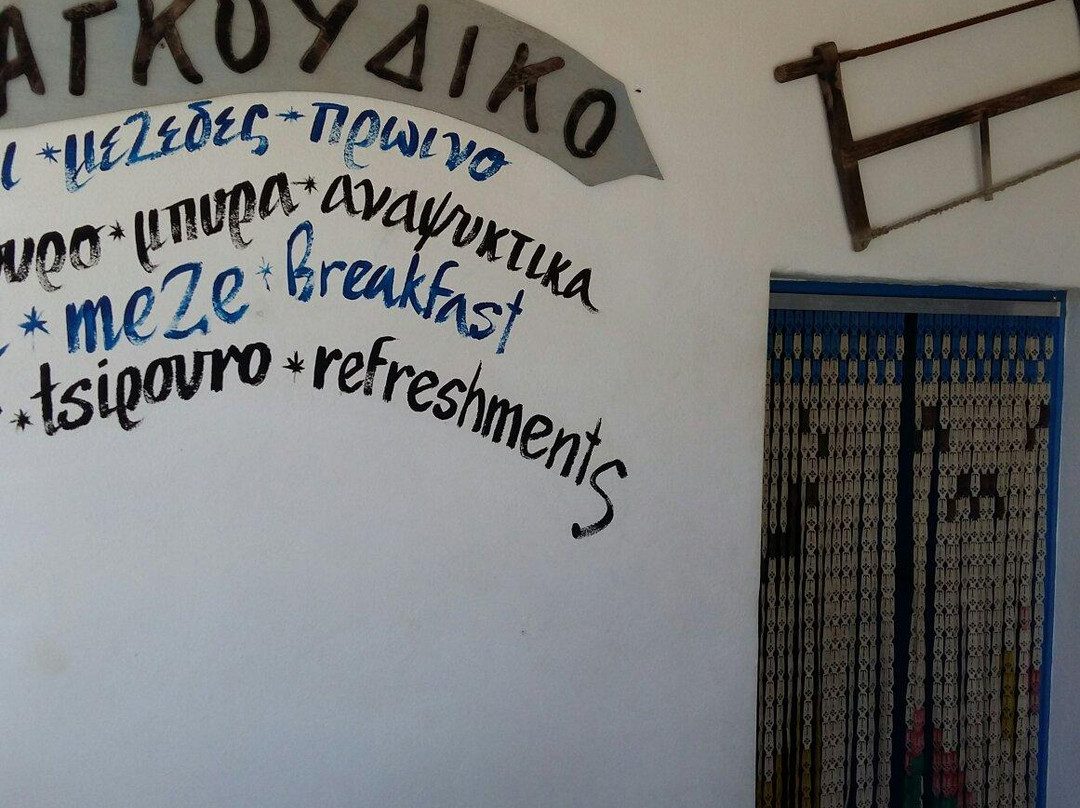 ΑΓΚΟΥΔΙΚΟ
ι * μεζεδες * πρωινο
ουρο * μπυρα * αναψυκτικα
* meze * Breakfast
* tsipouro * refreshments